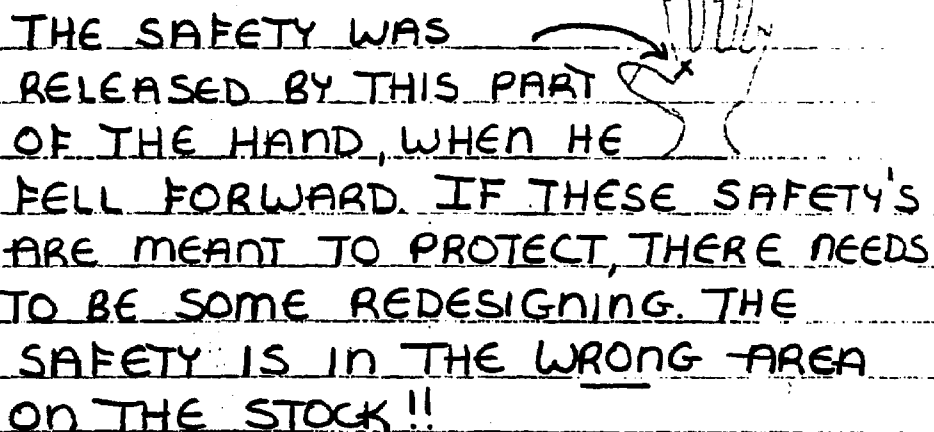 THE SAFETY WAS
RELEASED BY THIS PART
OF THE HAND, WHEN HE
FELL FORWARD. IF THESE SAFETY'S
ARE MEANT TO PROTECT, THERE NEEDS
TO BE SOME REDESIGNING. THE
SAFETY IS IN THE WRONG AREA
ON THE STOCK!!